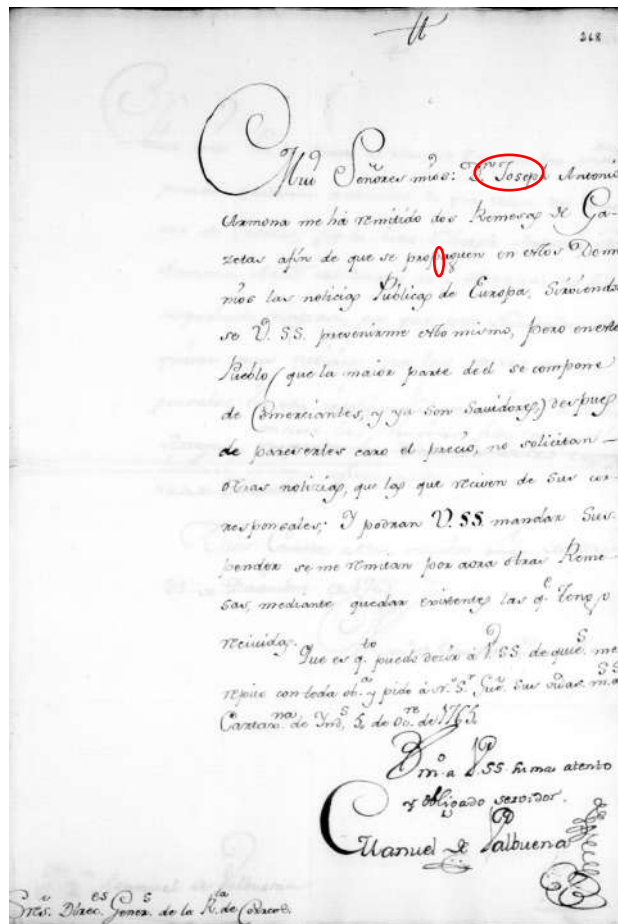 268
Mui Señores mios: Dn. Joseph Antonio
Armona me há remitido dos Remesas de Ga-
zetas afin de que se propaguen en estos Domi
nios las noticias Públicas de Europa, Sirviendo
se V. SS. prevenirme esto mismo, pero en este
Pueblo (que la maior parte de el se compone
de Comerciantes, y ya son Savidores,) despues
de parecerles caro el precio, no solicitan -
otras notizias, que las que reciven de sus cor-
responsales; Y podran V. SS. mandar Sus-
pender se me remitan por aora otras Reme-
sas, mediante quedar existentes las qe. Tengo
recividas.
Que es qto. puedo decir à V. SS. de quies. me
repito con toda oba. y pido à nro. Sr. Gue. sus vidas ms. as.
Cartaxna. de Inds. 5, de Ocre. de 1765.
Bmo. a V. SS. su mas atento
y obligado servidor.
Manuel de Valbuena
Sres. Direces. Generes. de la Rta. de Correos.